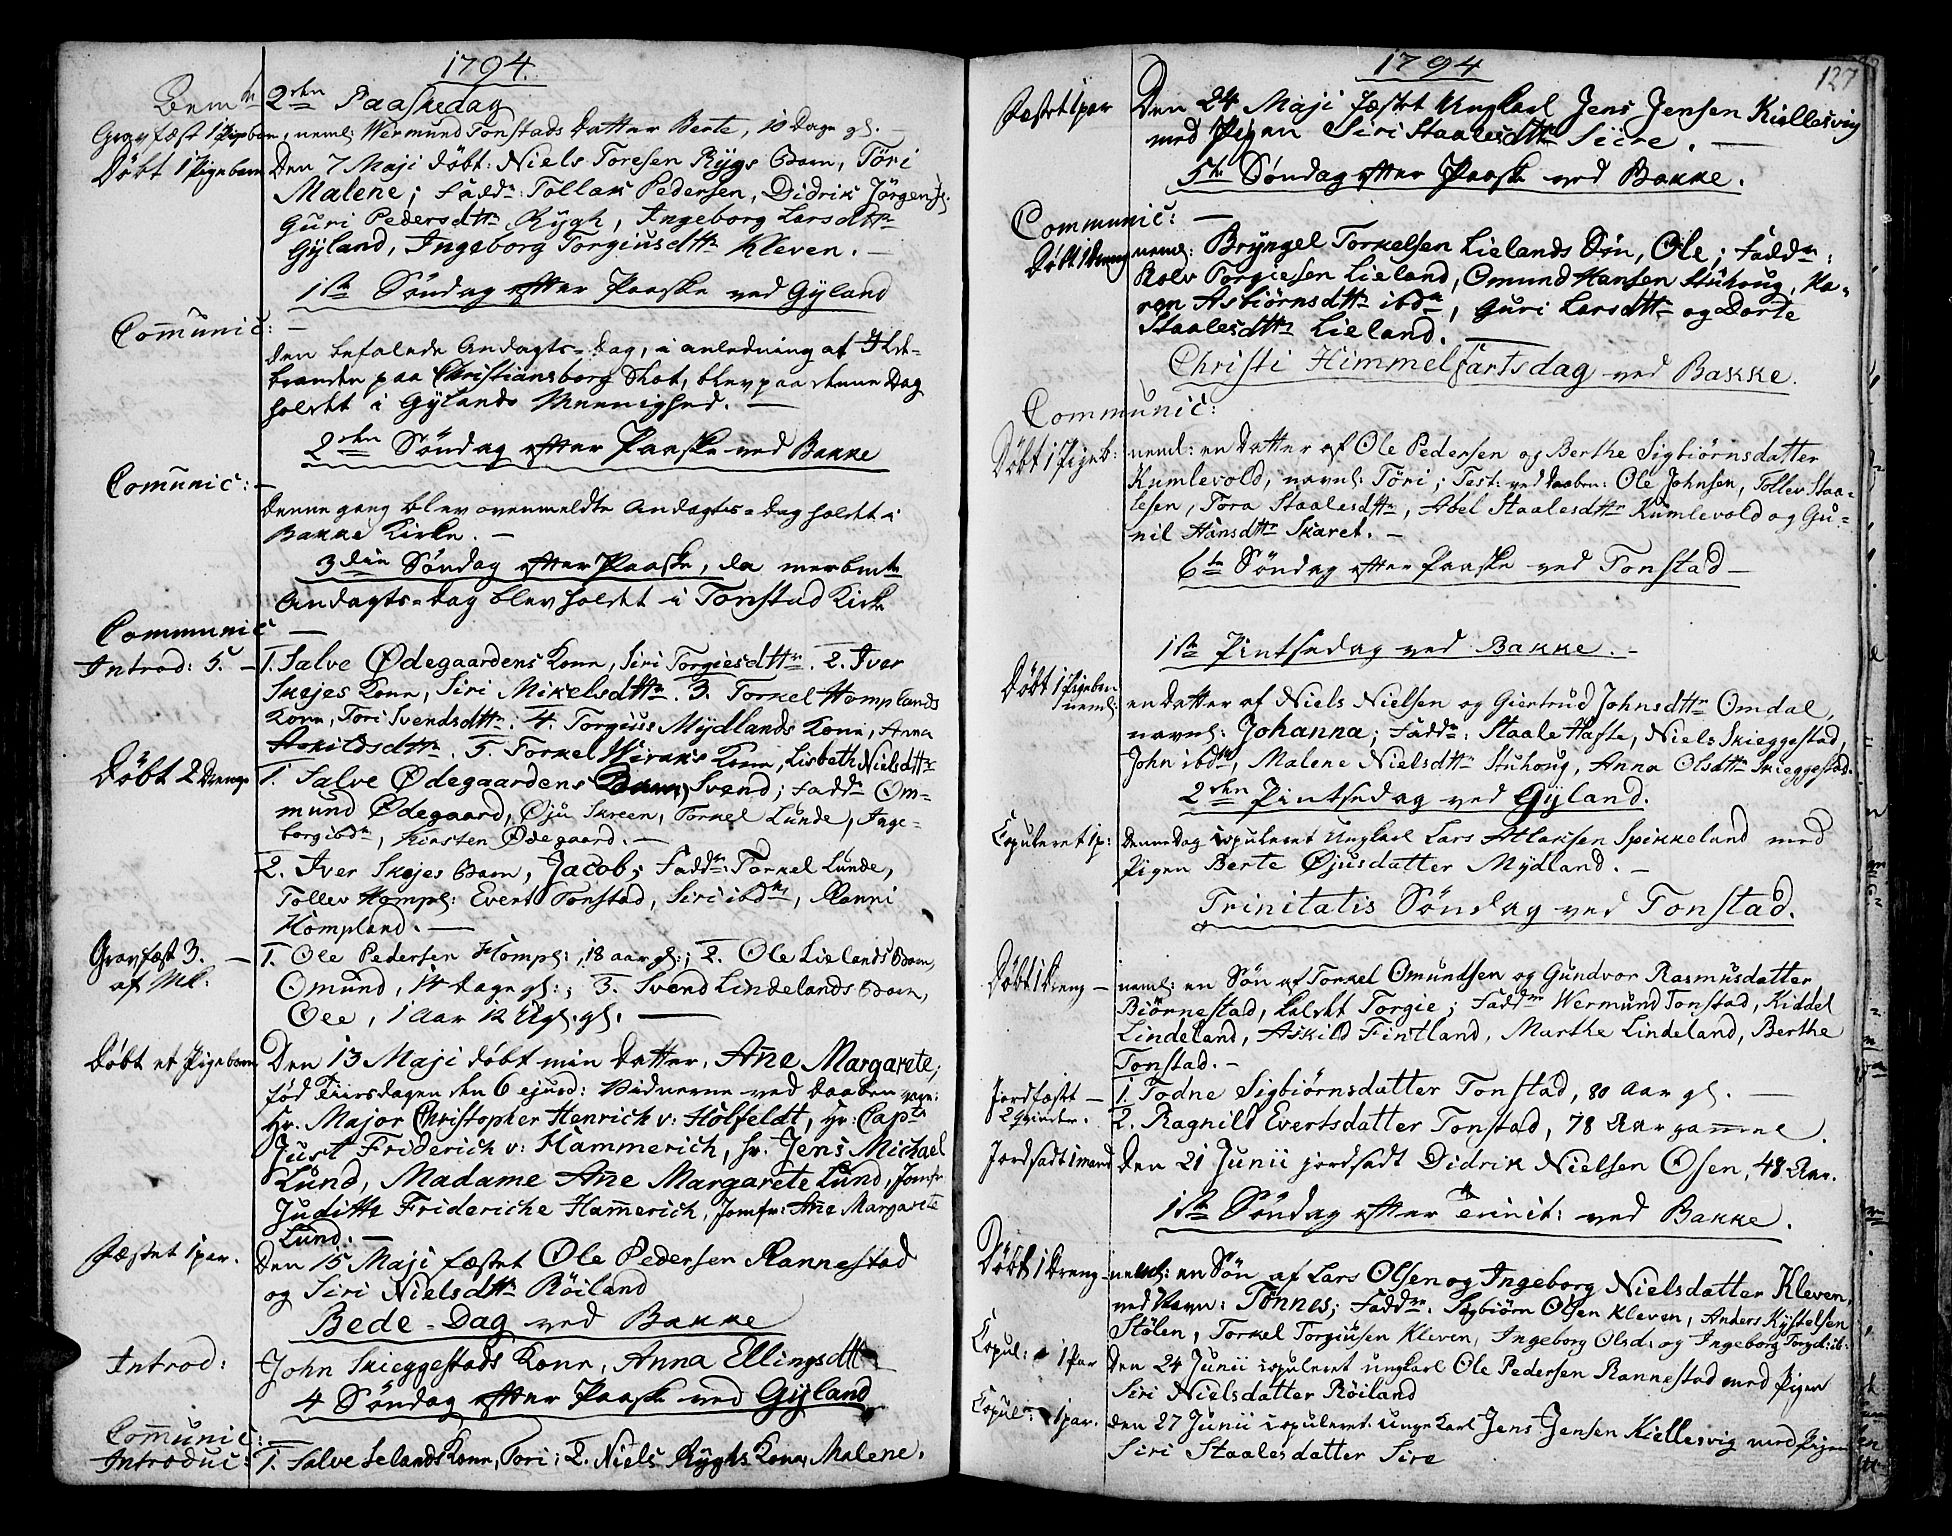 1794.
2den Paaskedag
Gravfæst 1 Pigebarn, neml: Wermund Tonstads Datter Berte, 10 Dage gl. —
Døbt 1 Pigebarn Den 7 Maji døbt: Niels Toresen Rygs Barn, Töri
Malene; Fadd: Tollak Pedersen, Didrik Jörgens:
Guri Pedersdttr Rygh, Ingeborg Larsdttr
Gyland, Ingeborg Torgiusdttr Kleven. —
1ste Søndag efter Paaske ved Gyland
Comunic: —
Den befalede Andagts-Dag, i anledning af Ilde-
branden paa Christiansborg Slot, blev paa denne Dag
holdet i Gylands Meenighed. —
2den Søndag efter Paaske ved Bakke
Comunic: —
Denne gang blev ovenmeldte Andagts-Dag holdt i
Bakke Kirke. —
3die Søndag efter Paaske, da merbmte
Andagts-Dag blev holdet i Tonstad Kirke
Communic —
Introd: 5. — 1. Salve Ødegaardens Kone, Siri Torgiesdttr. 2. Iver
Skejes Kone, Siri Mikelsdttr. 3. Torkel Homplands
Kone, Tori Svendsdttr. 4. Torgiuss Mydlands Kone, Anna
Askildsdttr. 5. Torkel Viraks Kone, Lisbeth Nielsdttr
Døbt 2 Drenge 1. Salve Ødegaardens Barn, Svend; Fadd: Om-
mund Ødegaard, Øju Skreen, Torkel Lunde, Inge-
borg ibdm, Kirsten Ødegaard. —
2. Iver Skejes Barn, Jacob; Fadd: Torkel Lunde,
Tollev Hompl: Evert Tonstad, Siri ibdm, Ranni
Hompland. —
Gravfæst 3. — 1. Ole Pedersen Hompl:, 18 aar gl:; 2. Ole Lielands Barn,
af Mk. Omund, 14 Dage gl:; 3. Svend Lindelands Barn,
Ole, 1 Aar 12 Ugl. gl. —
Døbt et Pigebarn Den 13 Maji døbt min Datter, Ane Margarete,
fød Tiirsdagen den 6 ejusd: Vidnerne ved Daaben vare:
Hr. Major Christopher Henrich v: Holfeldt, Hr. Capt
Just Friderich v: Hammerich, hr. Jens Michael
Lund, Madame Ane Margarete Lund, Jomfr
Juditte Frideriche Hamerich, Jomfr: Ane Margarete
Lund. —
Fæstet 1 par. Den 15 Maji fæstet Ole Pedersen Rannestad
og Siri Nielsdttr Röiland
Bede-Dag ved Bakke
Introd: John Skieggestads Kone, Anna Ellingsdttr
4 Søndag efter Paaske ved Gyland
Comunic: —
Introduc: 1. Salve Selands Kone, Tori; 2. Niels Ryghs Kone, Malene.
1794
127
Fæstet 1 par Den 24 Maji fæstet Ungkarl Jens Jensen Kiellesvig
med Pigen Siri Staalesdttr Siire. —
5te Søndag efter Paaske ved Bakke.
Communic: —
Døbt 1 Dreng neml: Bryngel Torkelsen Lielands Søn, Ole; Fadd:
Rolv Torgiesen Lieland, Omund Hansen Stuhoug, Ka-
ren Asbiörnsdttr ibdm, Guri Larsdttr og Dorte
Staalesdttr Lieland. —
Christi Himmelfartsdag ved Bakke.
Communic:
Døbt 1 Pigeb: neml: en Datter af Ole Pedersen og Berthe Sigbiörnsdatter
Kumlevold, navnl: Töri; Test: ved Daaben: Ole Johnsen, Tollev Staa-
lesen, Tora Staalesdttr, Abel Staalesdttr Kumlevold og Gu-
nil Hansdttr Skaret. —
6te Søndag efter Paaske ved Tonstad —
1ste Pintsedag ved Bakke. —
Døbt 1 Pigebarn
neml: en Datter af Niels Nielsen og Giertrud Johnsdttr Omdal,
navnl: Johanna; Fadd: Staale Hafte, Niels Skieggestad,
John ibdm, Malene Nielsdttr Stuhoug, Anna Olsdttr Skieggestad.
2den Pintsedag ved Gyland.
Copuleret 1 p: Denne Dag copuleret Ungkarl Lars Atlaksen Spikkeland med
Pigen Berte Øjusdatter Mydland. —
Trinitatis Søndag ved Tonstad.
Døbt 1 Dreng — neml: en Søn af Torkel Omundsen og Gundvor Rasmusdatter
Biörnestad, kaldet Torgie; Fadd: Wermund Tonstad, Kiddel
Lindeland, Askild Fintland, Marthe Lindeland, Berthe
Tonstad. —
Jordfæstet — 1. Todne Sigbiörnsdatter Tonstad, 80 Aar gl. —
2 Qvinder. 2. Ragnild Evertsdatter Tonstad, 78 Aar gamel.
Jordsadt 1 mand Den 21 Junii jordsadt Didrik Nielsen Osen, 48 Aar.
1ste Søndag efter Trinit: ved Bakke.
Døbt 1 Dreng — neml: en Søn af Lars Olsen og Ingeborg Nielsdatter Kleven,
ved Navn: Tønnes; Fadd: Sigbiörn Olsen Kleven, Anders Kystelsen
Stølen, Torkel Torgiusen Kleven, Ingeborg Olsd: og Ingeborg Torgd: ib:
Copul: 1 Par Den 24 Junii copuleret ungkarl Ole Pedersen Rannestad med Pigen
Siri Nielsdatter Röiland
Copul: 1 par. Den 27 Junii copuleret unge Karl Jens Jensen Kiellesvig med Pigen
Siri Staalesdatter Sire